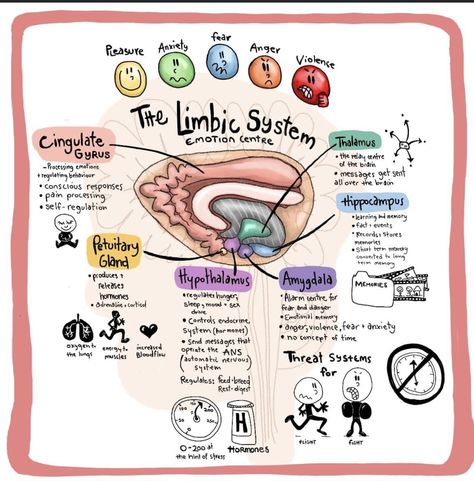 Pleasure
Anxiety
fear
Anger
Violence
The Limbic System
EMOTION CENTRE
Cingulate
Gyrus
- Processing emotions
+ regulating behaviour
• conscious responses
• pain processing
• self-regulation
Thalamus
• the relay centre
of the brain
• messages get sent
all over the brain
Hippocampus
• learning and memory
• fact + events
• Records + Stores
memories
• Short term memory
converted to long
term memory
MEMORIES
Petuitary
Gland
• produces +
releases
hormones
• Adrenaline + cortisol
oxygen to
the lungs
energy to
muscles
increased
Bloodflow
Hypothalamus
• regulates hunger,
sleep, mood + sex
drive
• Controls endocrine
System (hormones)
• Send messages that
operate the ANS
(automatic nervous)
system
Regulates: feed-breed
Rest-digest
Amygdala
• Alarm centre for
fear and danger
• Emotional memory
• anger, violence, fear + anxiety
• no concept of time
Threat Systems
for
FLIGHT
FIGHT
0-200 at
the hint of stress
H
HORMONES